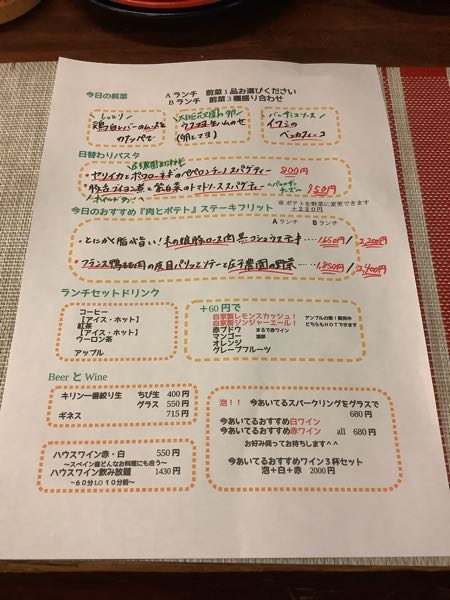 今日の前菜
Aランチ 前菜1品お選びください
Bランチ 前菜3種盛り合わせ
しっとり
鶏白レバームースを
カナッペで
バーニャソース
イワシの
ベッカフィーコ
日替わりパスタ
ヤリイカと のペペロンチーノスパゲティー 800円
のトマトソーススパゲティー 950円
今日のおすすめ『肉とポテト』ステーキフリット
※ポテトを野菜に変更できます
+220円
Aランチ Bランチ
・とにかく脂が旨い! 豚ロース肉 黒コショウステーキ… 1,650円/2,200円
・フランス鴨もも肉の皮目パリッとソテーと庄子農園の野菜… 1,850円/2,400円
ランチセットドリンク
コーヒー
【アイス・ホット】
紅茶
【アイス・ホット】
ウーロン茶
アップル
+60円で
自家製レモンスカッシュ!
自家製ジンジャーエール!
どちらもHOTできます
赤ブドウ まるで赤ワイン
マンゴー 濃厚
オレンジ
グレープフルーツ
Beer と Wine
キリン一番絞り生 ちび生 400円
グラス 550円
ギネス 715円
ハウスワイン赤・白 550円
~スペイン産どんなお料理にも合う~
ハウスワイン飲み放題 1430円
~60分LO10分前~
泡!! 今あいてるスパークリングをグラスで
680円
今あいてるおすすめ白ワイン
今あいてるおすすめ赤ワイン all 680円
お好み伺ってお持ちします^^
今あいてるおすすめワイン3杯セット
泡+白+赤 2000円